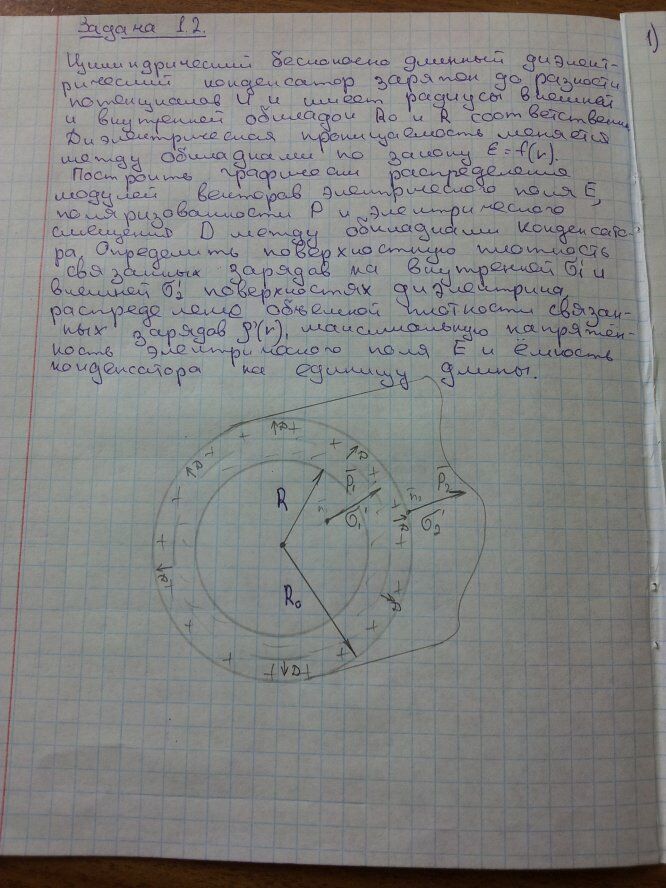 Задача 1.2.
1)
Цилиндрический бесконечно длинный диэлект-
рический конденсатор заряжен до разности
потенциалов U и имеет радиусы внешней
и внутренней обкладой R₀ и R соответственн
Диэлектрическая проницаемость меняется
между обкладками по закону ε=f(r).
Построить графически распределения
модулей векторав электрического поля E,
поляризованности P и электрического
смещения D между обкладками конденсато-
ра. Определить поверхностную плотность
связанных зарядав на внутренней σ'₁ и
внешней σ'₂ поверхностях диэлектрика,
распределение объемной плотности связан-
ных зарядав ρ'(r), максимальную напряжён-
ность электрического поля E и ёмкость
конденсатора на единицу длины.
R
R₀
P₁
σ'₁
P₂
σ'₂